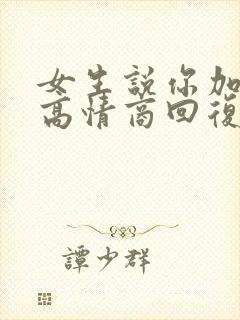 女生說你加
高情商回復
譚少群